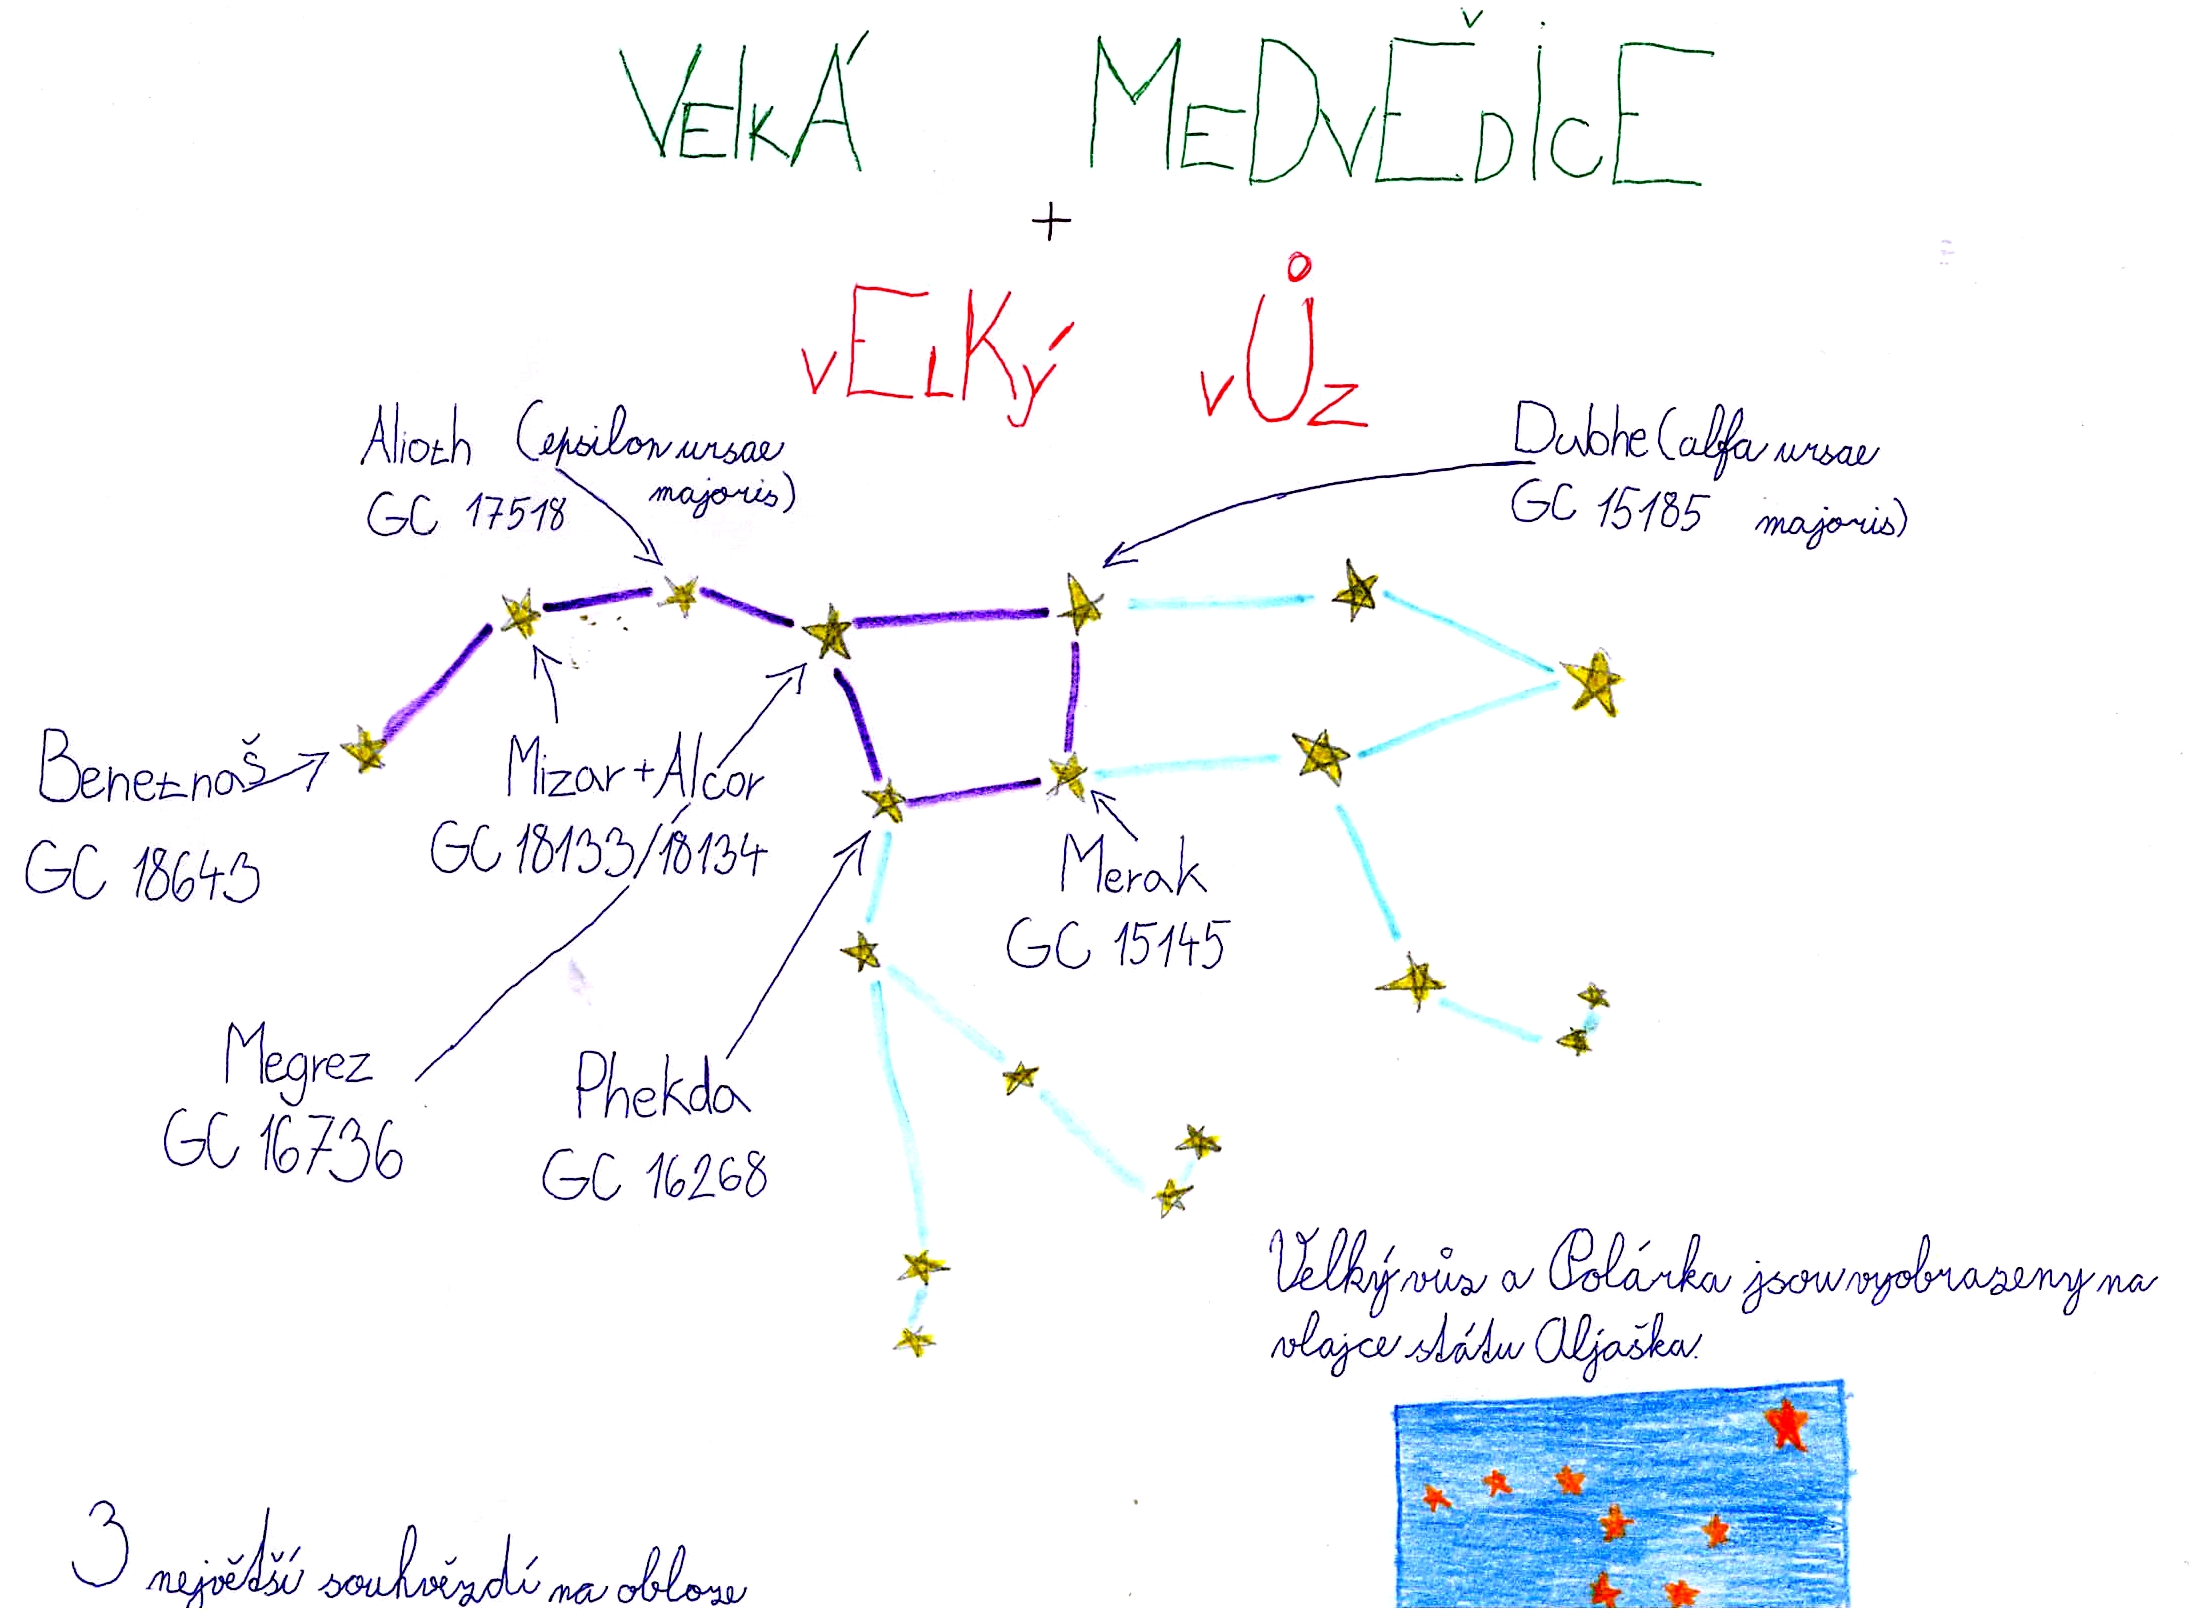 VElkÁ MEDVĚDICE
+
vELKý vŮz
Alioth (epsilon ursae
majoris)
GC 17518
Dubhe (alfa ursae
GC 15185 majoris)
Benetnaš
GC 18643
Mizar + Alcor
GC 18133/18134
Merak
GC 15145
Megrez
GC 16736
Phekda
GC 16268
Velký vůz a Polárka jsou vyobrazeny na
vlajce státu Aljaška.
3 největší souhvězdí na obloze